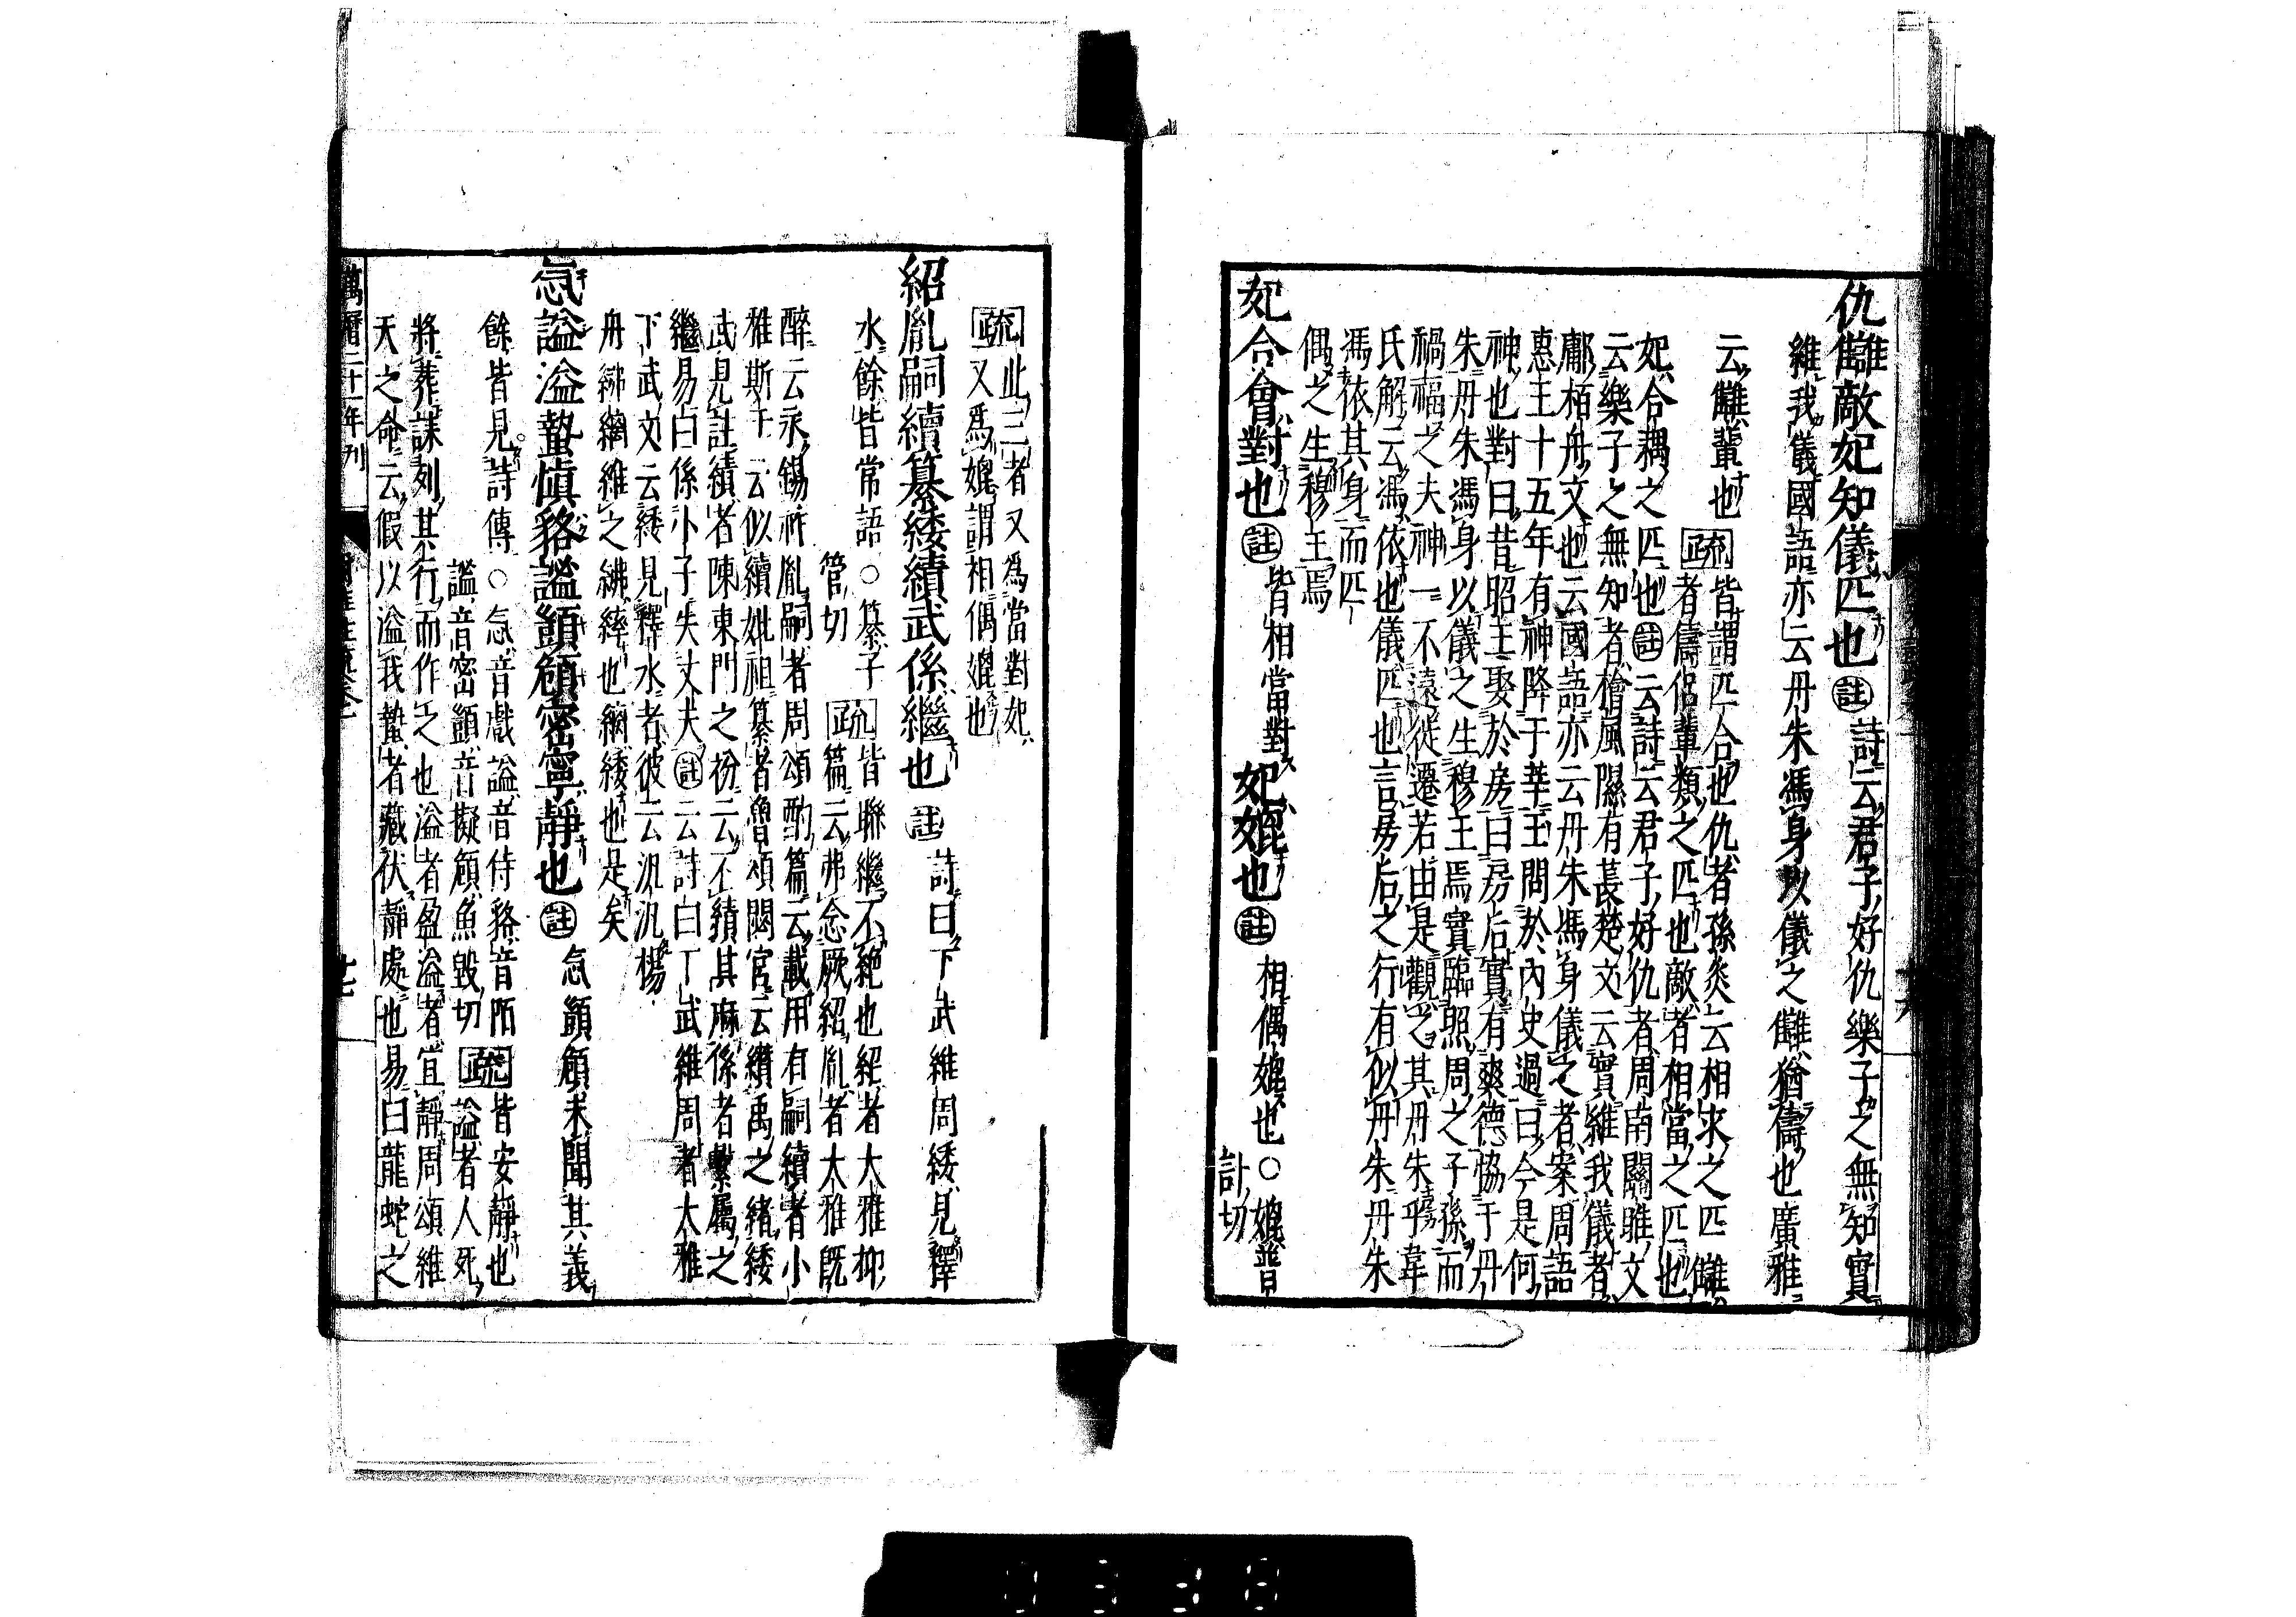 仇讎敵妃知儀匹也㊟詩云君子好仇樂子之無知實
維我儀國語亦云丹朱馮身以儀之讎猶儔也廣雅
云讎輩也 疏 皆謂匹合也仇者孫炎云相求之匹讎
者儔侶輩類之匹也敵者相當之匹也
妃合耦之匹也㊟云詩云君子好仇者周南關雎文
云樂子之無知者檜風隰有萇楚文云實維我儀者
鄘柏舟文也云國語亦云丹朱馮身儀之者案周語
惠王十五年有神降于莘王問於內史過曰今是何
神也對曰昔昭王娶於房曰房后實有爽德恊于丹
朱丹朱馮身以儀之生穆王焉實臨照周之子孫而
禍福之夫神一不遠徙遷若由是觀之其丹朱乎韋
氏解云馮依也儀匹也言房后之行有似丹朱丹朱
馮依其身而匹
偶之生穆王焉
妃合會對也㊟皆相當對妃媲也㊟相偶媲也○媲普
計切
疏 此三者又為當對妃
又為媲謂相偶媲也
紹胤嗣續纂緌績武係繼也㊟詩曰下武維周緌見釋
水餘皆常語○纂子
管切 疏 皆聯繼不絕也紹者大雅抑
篇云弗念厥紹胤者大雅既
醉云永錫祚胤嗣者周頌酌篇云載用有嗣續者小
雅斯干云似續妣祖纂者魯頌閟宮云纘禹之緒緌
武見註績者陳東門之枌云不績其麻係者繫屬之
繼易曰係小子失丈夫㊟云詩曰下武維周者大雅
下武文云緌見釋水者彼云汎汎楊
舟紼縭維之紼䋏也縭緌也是矣
忥謚溢蟄慎貉謐顗頠密寧靜也㊟忥顗頠未聞其義
餘皆見詩傳○忥音戲謚音侍貉音陌
謐音密顗音擬頠魚毀切 疏 皆安靜也
謚者人死
將葬誄列其行而作之也溢者盈溢者宜靜周頌維
天之命云假以溢我蟄者藏伏靜處也易曰龍蛇之
萬曆二十一年刊